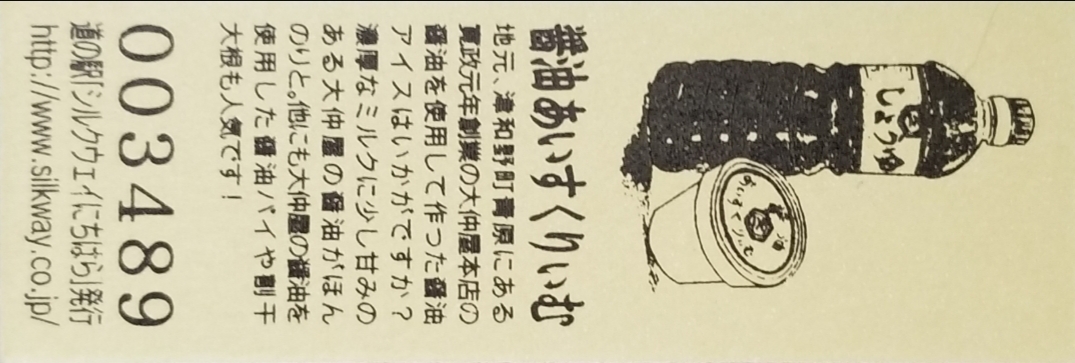 しょうゆ
醤油
あいすくりいむ
醤油あいすくりぃむ
地元、津和野町青原にある
寛政元年創業の大仲屋本店の
醤油を使用して作った醤油
アイスはいかがですか？
濃厚なミルクに少し甘みの
ある大仲屋の醤油がほん
のりと。他にも大仲屋の醤油を
使用した醤油パイや割干
大根も人気です！
003489
道の駅「シルクウェイにちはら」発行
http://www.silkway.co.jp/